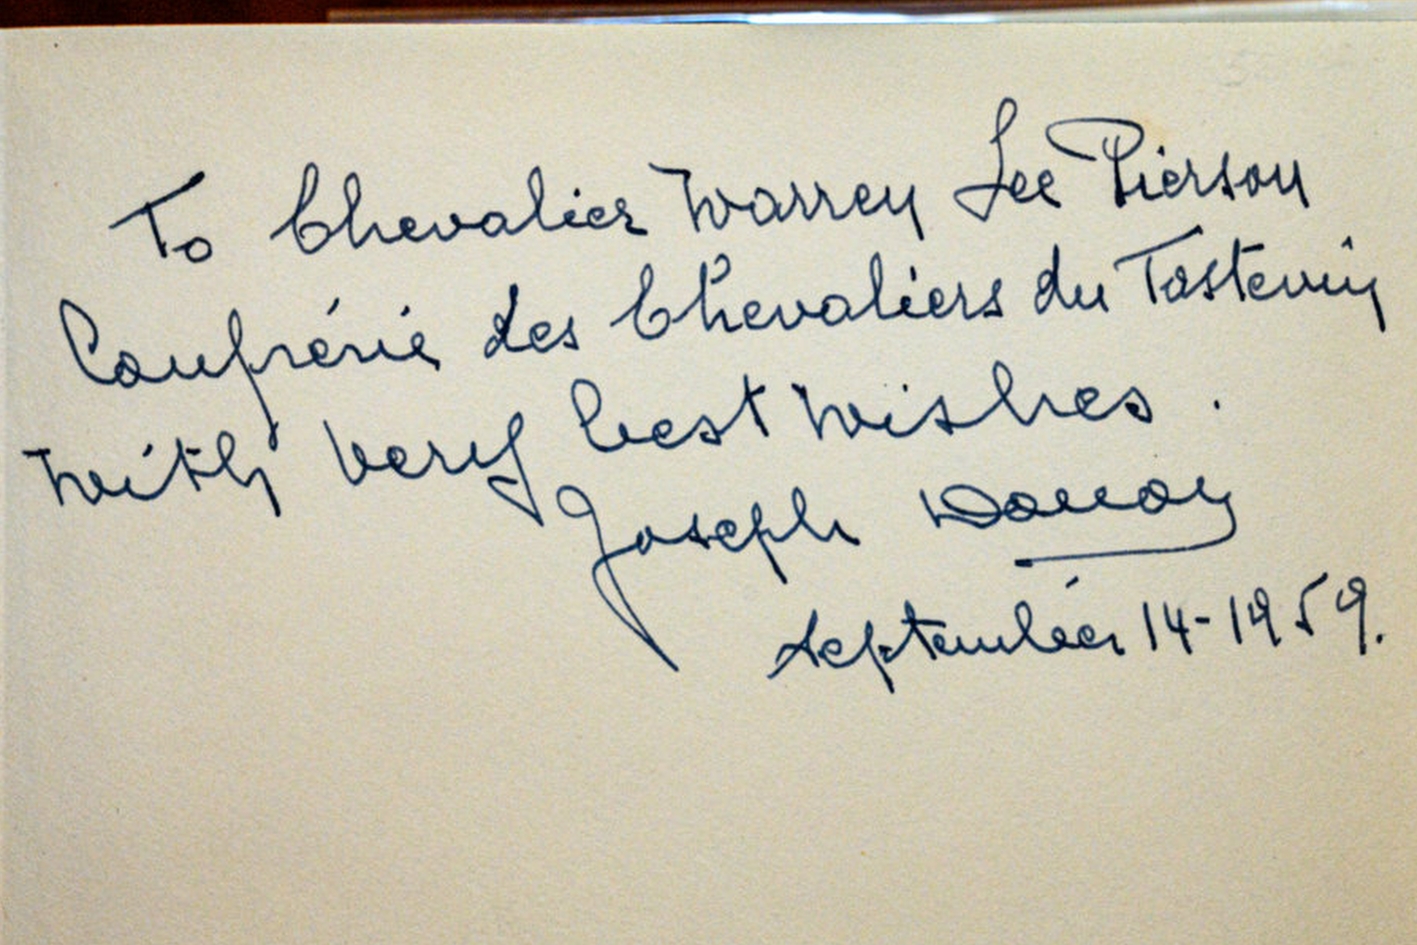 To Chevalier Warren Lee Pierson
Confrérie des Chevaliers du Tastevin
with very best wishes.
Joseph Donon
September 14-1959.